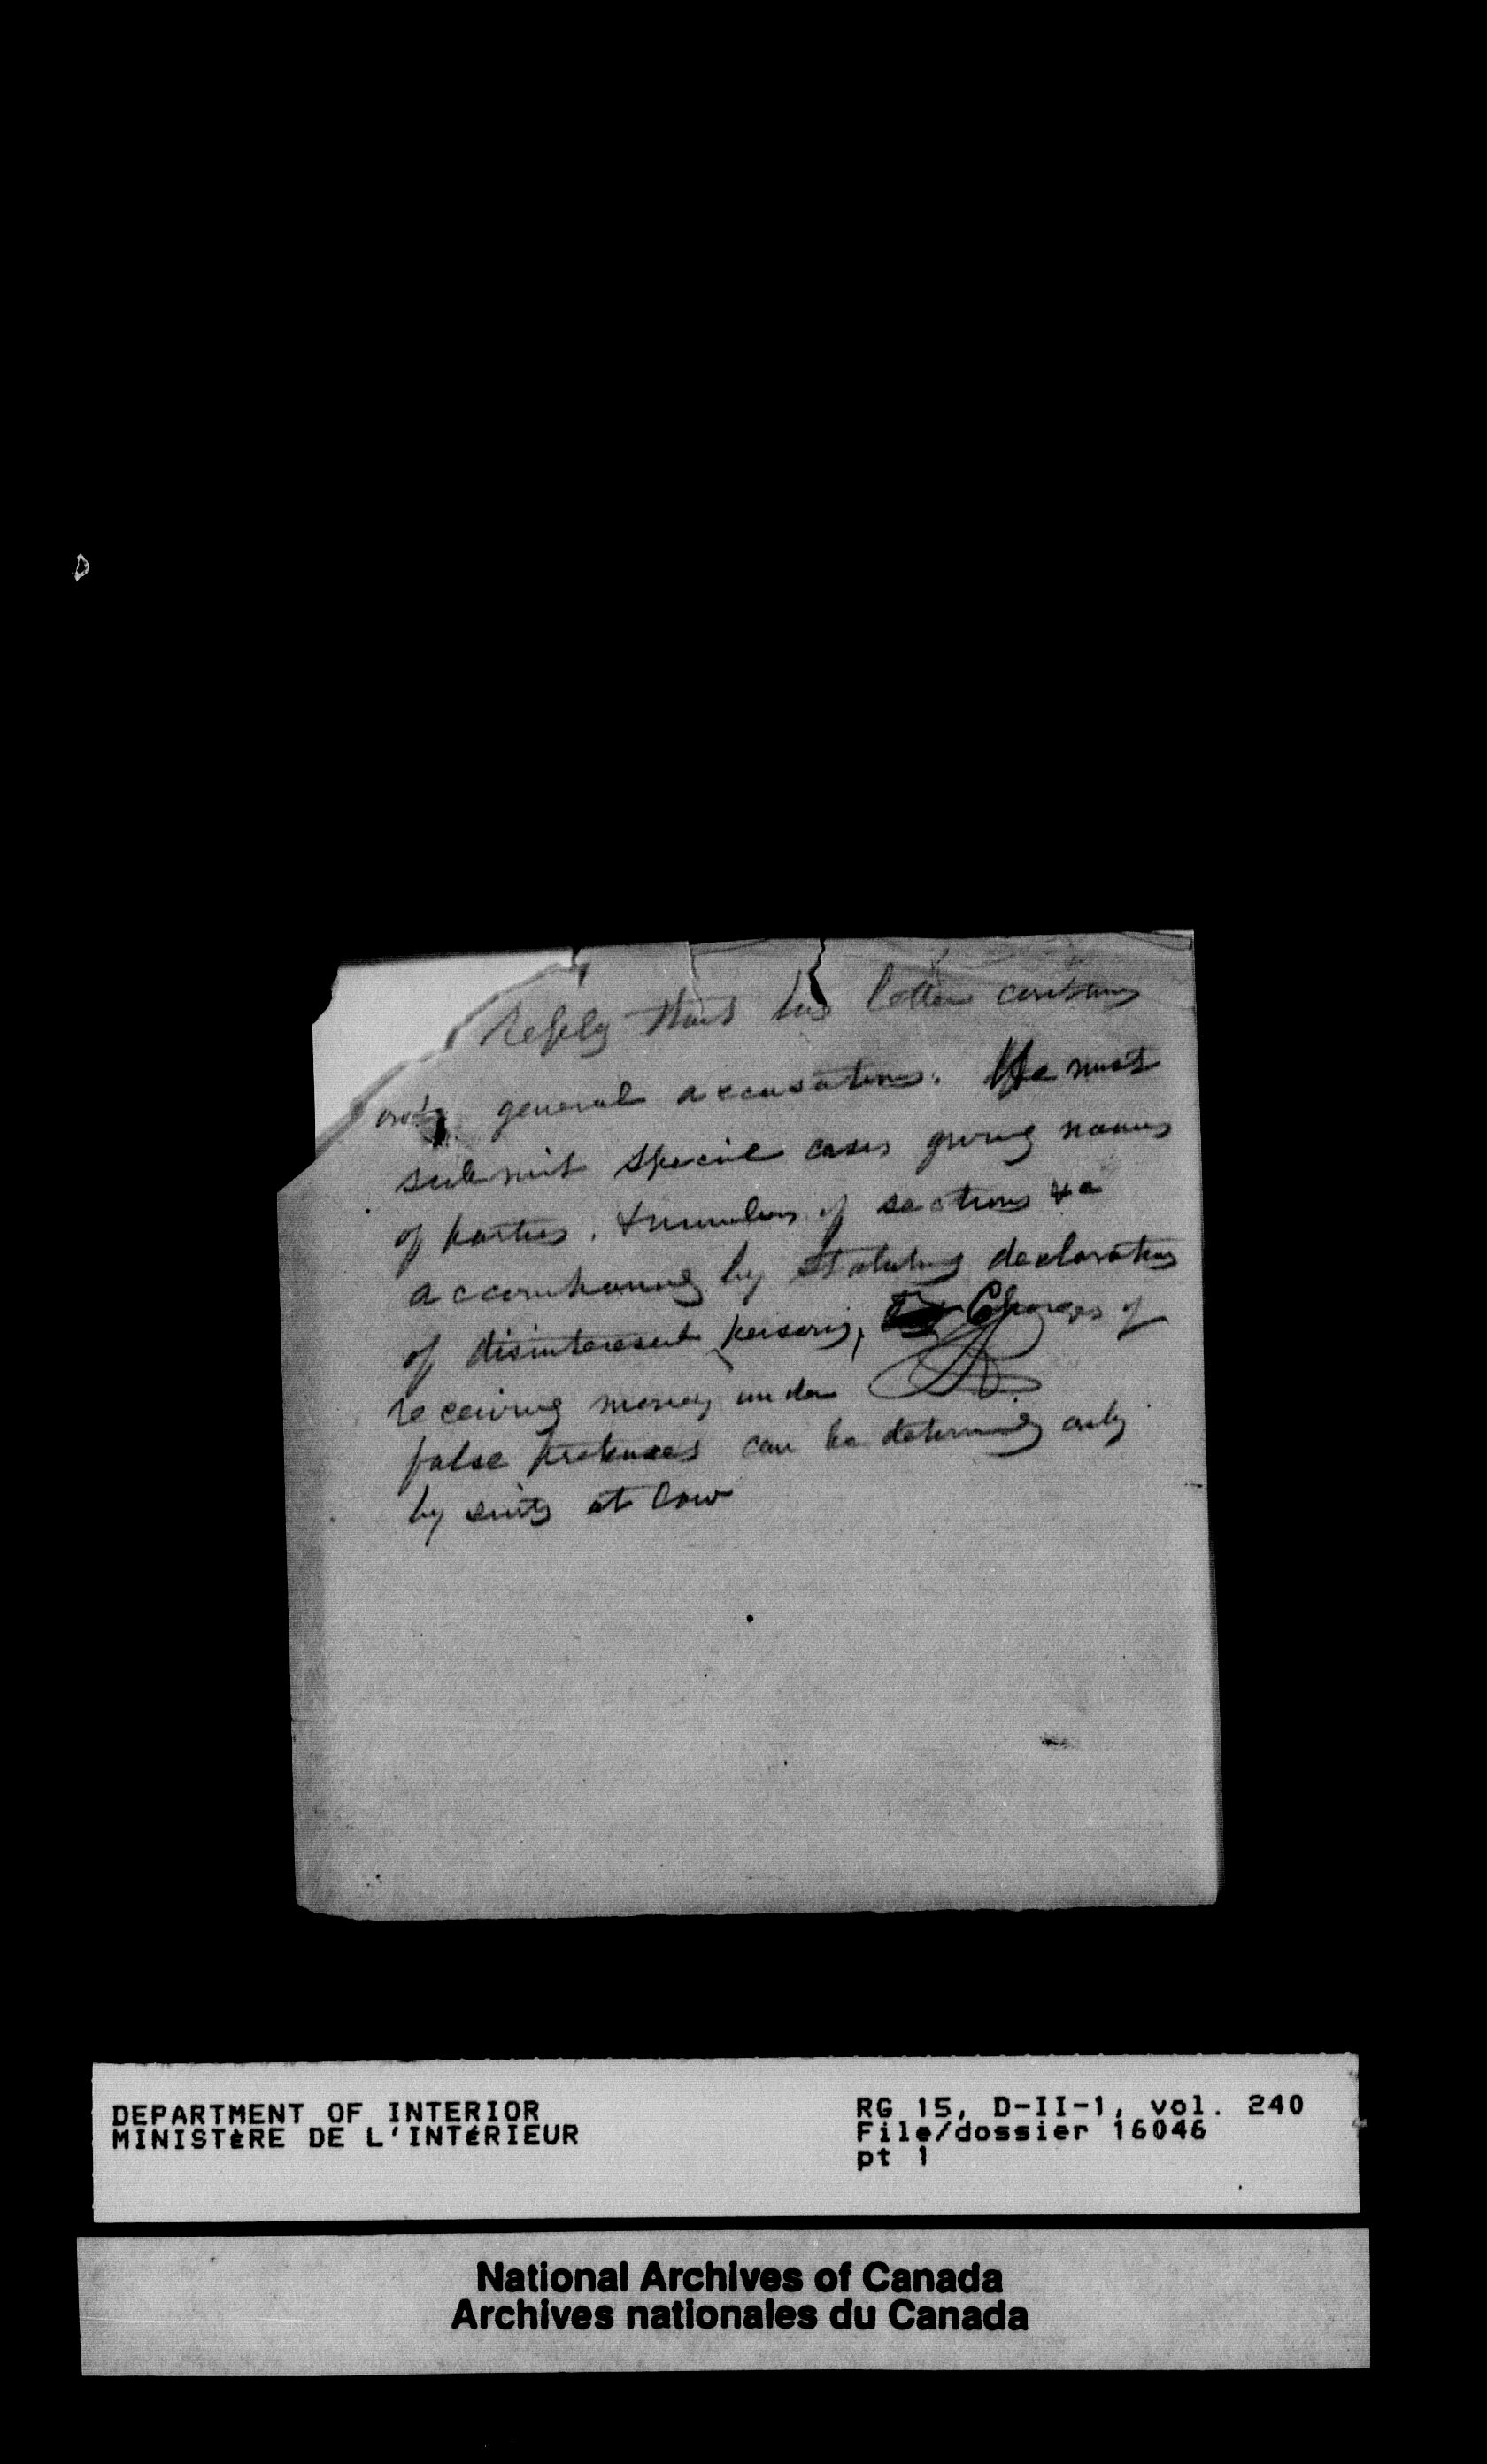 Reply that his letter contains
only general accusations. He must
submit special cases giving names
of parties, & numbers of sections &c
accompanied by statutory declarations
of disinterested persons, Charges of
receiving money under
false pretences can be determined only
by suits at law
DEPARTMENT OF INTERIOR
MINISTÈRE DE L'INTÉRIEUR
RG 15, D-II-1, vol. 240
File/dossier 16046
pt 1
National Archives of Canada
Archives nationales du Canada